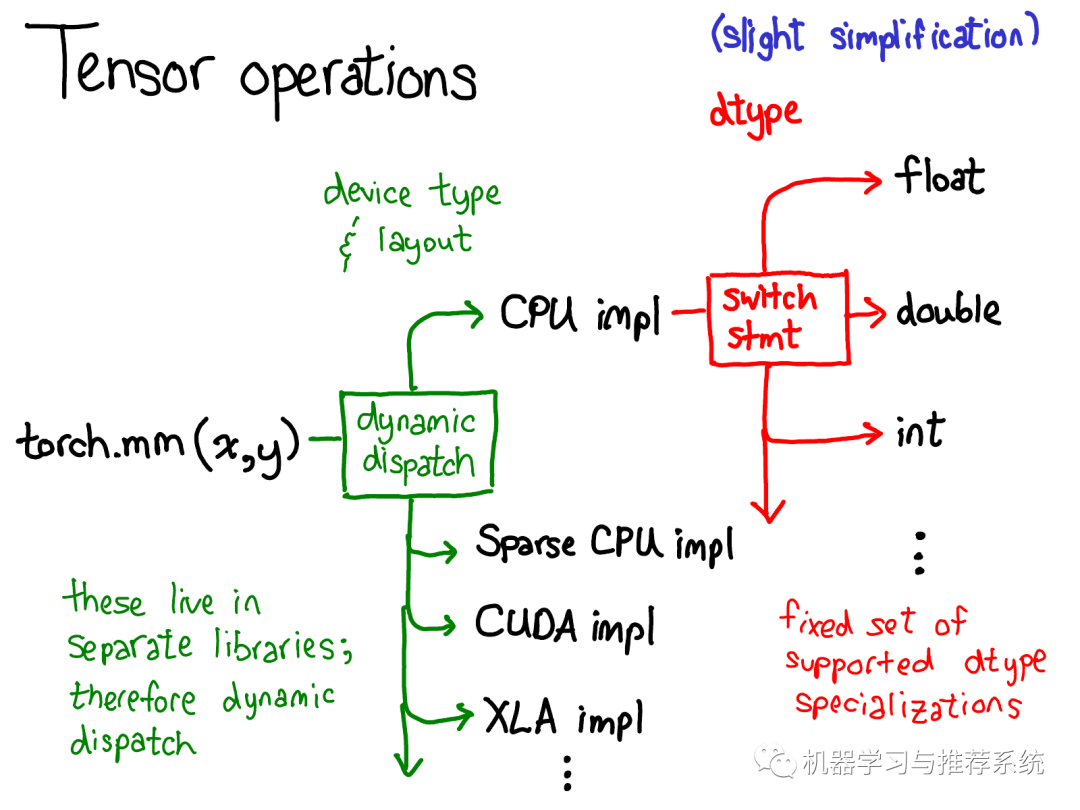 Tensor operations
(slight simplification)
dtype
device type
& layout
float
CPU impl
switch
stmt
double
torch.mm(x,y)
dynamic
dispatch
int
Sparse CPU impl
CUDA impl
XLA impl
⋮
these live in
separate libraries;
therefore dynamic
dispatch
⋮
fixed set of
supported dtype
specializations
机器学习与推荐系统